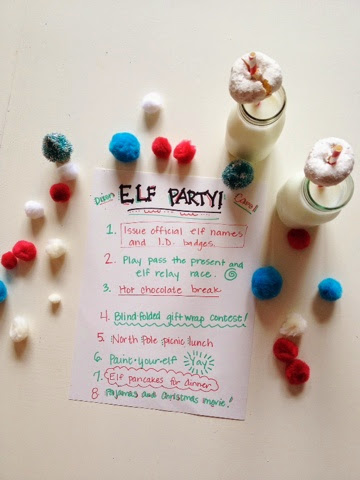 ELF PARTY!
1. Issue official elf names
and I.D. badges.
2. Play pass the present and
elf relay race.
3. Hot chocolate break
4. Blindfolded gift wrap contest!
5. North Pole picnic lunch
6. Paint-yourself Yay!
7. Elf pancakes for dinner
8. Pajamas and Christmas movie!